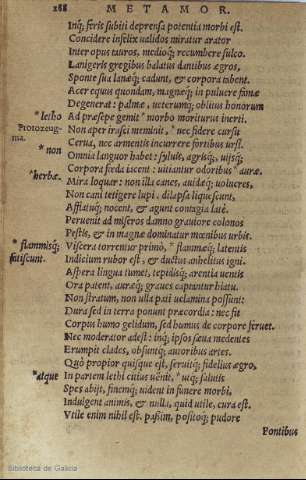 268 METAMOR.
Inq; feris subiti deprensa potentia morbi est.
Concidere infelix ualidos miratur arator
Inter opus tauros, medioq; recumbere sulco.
Lanigeris gregibus balatus dantibus ægros,
Sponte sua lanæq; cadunt, & corpora tabent.
Acer equus quondam, magnæq; in puluere famæ
Degenerat: palmæ, ueterumq; oblitus honorum
*letho Ad præsepe gemit * morbo moriturus inerti.
Protozeugma. Non aper irasci meminit, * nec fidere cursu
*non Cerua, nec armentis incurrere fortibus ursi.
Omnia languor habet: syluis, agrisq;, uijsq;
*herbæ Corpora fœda iacent: uitiantur odoribus * auræ.
Mira loquar: non illa canes, auidæq; uolucres,
Non cani tetigere lupi. dilapsa liquescunt,
Afflatuq; nocent, & agunt contagia latè.
Peruenit ad miseros damno grauiore colonos
Pestis, & in magnæ dominatur mœnibus urbis.
*flammisq; Viscera torrentur primò, * flammæq; latentis
fatiscunt. Indicium rubor est, & ductus anhelitus igni.
Aspera lingua tumet, tepidisq; arentia uentis
Ora patent, auræq; graues captantur hiatu.
Non stratum, non ulla pati uelamina possunt:
Dura sed in terra ponunt præcordia: nec fit
Corpus humo gelidum, sed humus de corpore feruet.
Nec moderator adest: inq; ipsos sæua medentes
Erumpit clades, obsuntq; autoribus artes.
Quò propior quisque est, seruitq; fidelius ægro,
*atque In partem lethi citius uenit, * utq; salutis
Spes abijt, finemq; uident in funere morbi,
Indulgent animis, & nulla, quid utile, cura est.
Vtile enim nihil est. paßim, positoq; pudore
Pontibus
Biblioteca de Galicia